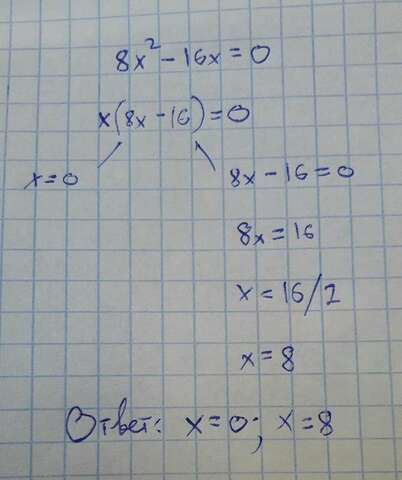 8x² - 16x = 0
x(8x - 16) = 0
x = 0
8x - 16 = 0
8x = 16
x = 16/2
x = 8
Ответ: x = 0; x = 8